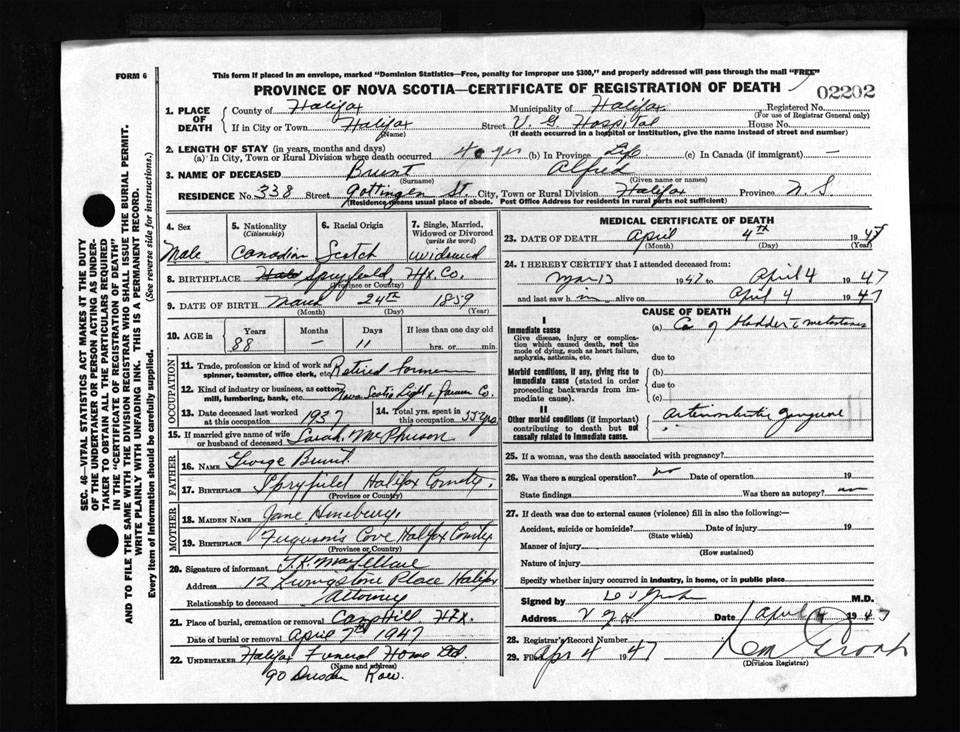 FORM 6
This form if placed in an envelope, marked "Dominion Statistics—Free, penalty for improper use $300," and properly addressed will pass through the mail "FREE"
PROVINCE OF NOVA SCOTIA—CERTIFICATE OF REGISTRATION OF DEATH
02202
SEC. 46—VITAL STATISTICS ACT MAKES AT THE DUTY
OF THE UNDERTAKER OR PERSON ACTING AS UNDER-
TAKER TO OBTAIN ALL THE PARTICULARS REQUIRED
IN THE "CERTIFICATE OF REGISTRATION OF DEATH"
AND TO FILE THE SAME WITH THE DIVISION REGISTRAR WHO SHALL ISSUE THE BURIAL PERMIT.
WRITE PLAINLY WITH UNFADING INK. THIS IS A PERMANENT RECORD.
Every item of information should be carefully supplied. (See reverse side for instructions.)
1. PLACE OF DEATH
County of Halifax Municipality of Halifax Registered No.
(For use of Registrar General only)
If in City or Town Halifax Street V. G. Hospital House No.
(Name) (If death occurred in a hospital or institution, give the name instead of street and number)
2. LENGTH OF STAY (in years, months and days)
(a) In City, Town or Rural Division where death occurred yrs (b) In Province Life (c) In Canada (if immigrant) —
3. NAME OF DECEASED Brunt Alfred
(Surname) (Given name or names)
RESIDENCE No. 338 Street Gottingen St. City, Town or Rural Division Halifax Province N S
(Residence means usual place of abode. Post Office Address for residents in rural parts not sufficient)
4. Sex 5. Nationality (Citizenship) 6. Racial Origin 7. Single, Married, Widowed or Divorced (write the word)
Male Canadian Scotch Widowed
8. BIRTHPLACE Spryfield, Hfx. Co.
(Province or Country)
9. DATE OF BIRTH March 24th 1859
(Month) (Day) (Year)
10. AGE in Years Months Days If less than one day old
88 — 11 hrs. or min.
OCCUPATION
11. Trade, profession or kind of work as spinner, teamster, office clerk, etc. Retired
12. Kind of industry or business, as cotton mill, lumbering, bank, etc. Nova Scotia Light & Power Co.
13. Date deceased last worked at this occupation 1937 14. Total yrs. spent in this occupation 55 yrs.
15. If married give name of wife or husband of deceased Sarah McPherson
FATHER
16. NAME George Brunt
17. BIRTHPLACE Spryfield Halifax County.
(Province or Country)
MOTHER
18. MAIDEN NAME Jane
19. BIRTHPLACE Ferguson's Cove Halifax County
(Province or Country)
20. Signature of informant
Address 12 Livingstone Place Halifax
Relationship to deceased Attorney
21. Place of burial, cremation or removal Camp Hill. Hfx.
Date of burial or removal April 7th 1947
22. UNDERTAKER Halifax Funeral Home Ltd.
(Name and address)
90 Dresden Row.
MEDICAL CERTIFICATE OF DEATH
23. DATE OF DEATH April 4th 1947
(Month) (Day) (Year)
24. I HEREBY CERTIFY that I attended deceased from:
Mar 13 1947 to April 4 1947
and last saw h im alive on April 4 1947
CAUSE OF DEATH
I
Immediate cause (a) Ca of bladder c metastases
Give disease, injury or complica-
tion which caused death, not the
mode of dying, such as heart failure,
asphyxia, asthenia, etc. due to
Morbid conditions, if any, giving rise to (b)
immediate cause (stated in order due to
proceeding backwards from im-
mediate cause). (c)
II
Other morbid conditions (if important) Arteriosclerotic gangrene
contributing to death but not
causally related to immediate cause.
25. If a woman, was the death associated with pregnancy?
26. Was there a surgical operation? no Date of operation 19
State findings Was there an autopsy? no
27. If death was due to external causes (violence) fill in also the following:—
Accident, suicide or homicide? Date of injury 19
(State which)
Manner of injury
(How sustained)
Nature of injury
Specify whether injury occurred in industry, in home, or in public place
Signed by M.D.
Address V G H Date April 4 1947
28. Registrar's Record Number
29. Filed Apr 4 1947
(Division Registrar)